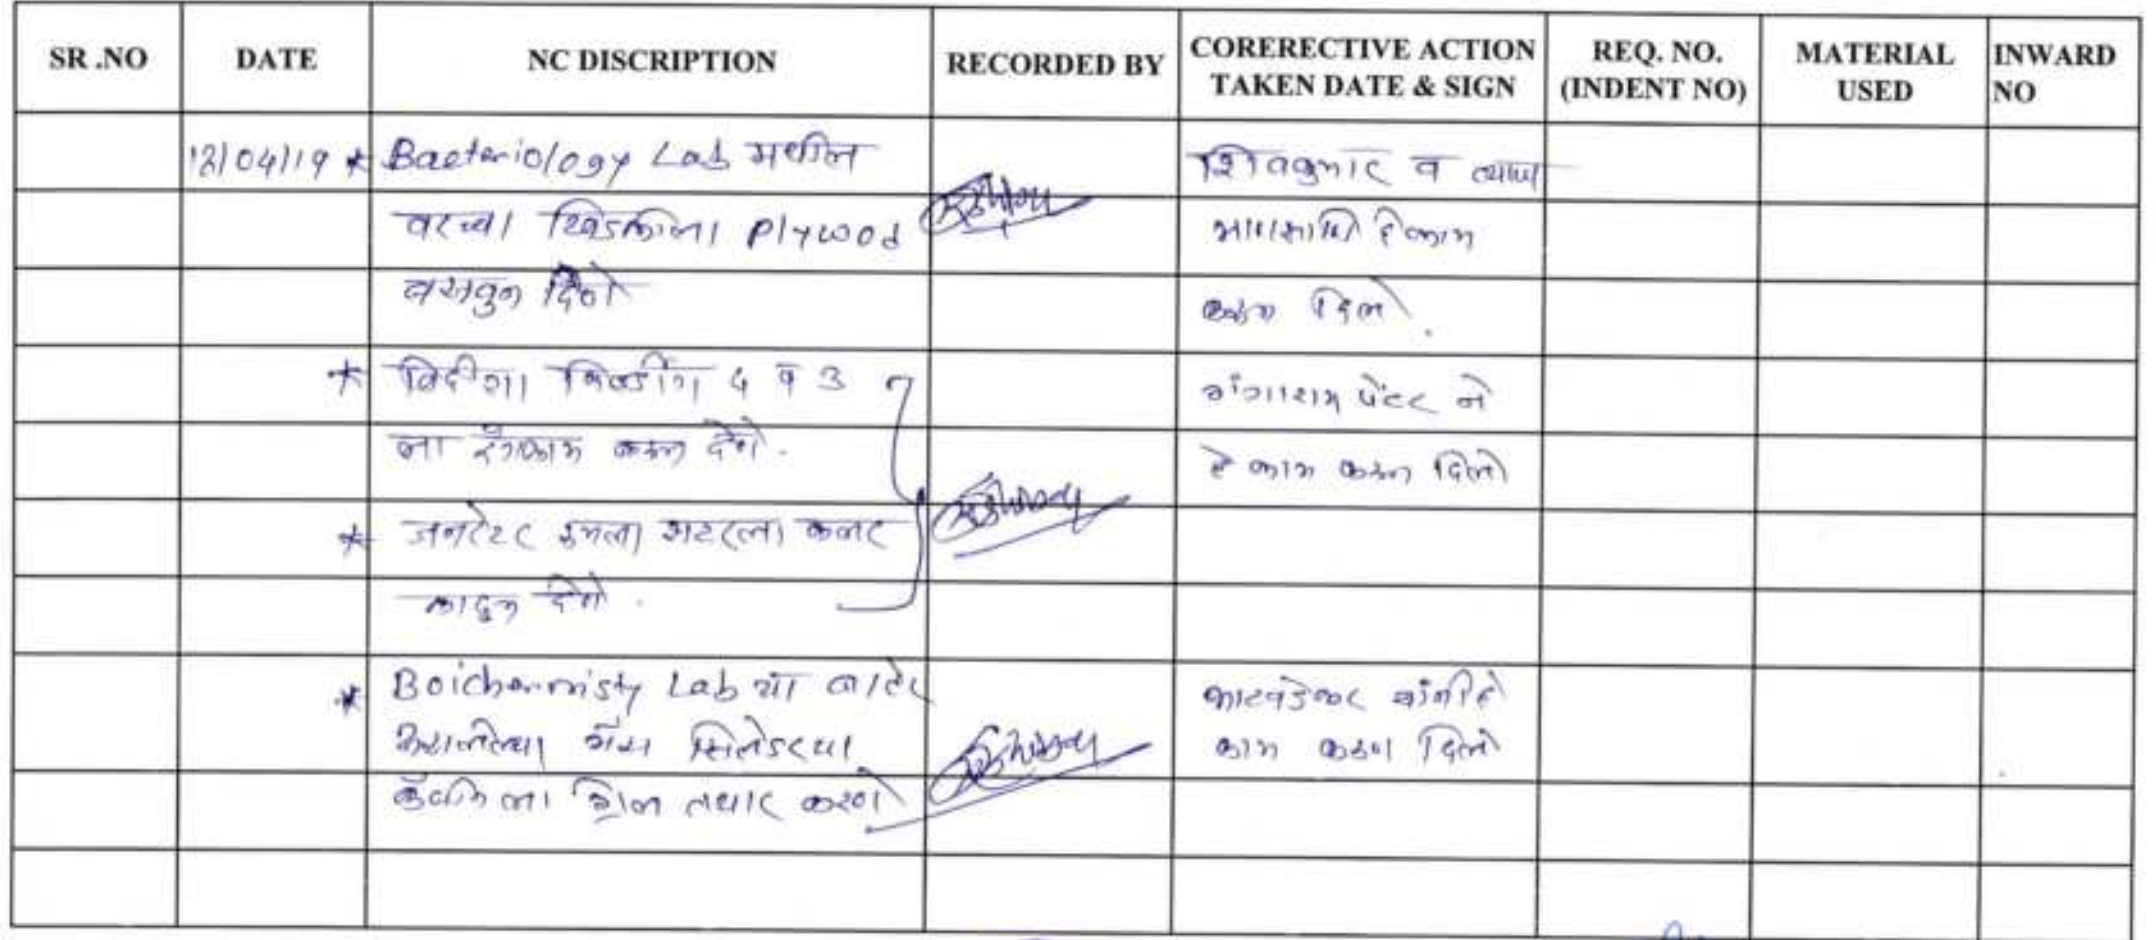 SR .NO DATE NC DISCRIPTION RECORDED BY CORERECTIVE ACTION TAKEN DATE & SIGN REQ. NO. (INDENT NO) MATERIAL USED INWARD NO
12/04/19 * Bacteriology Lab मधील शिवकुमार व
वरच्या खिडकीला Plywood हे काम
बसवुन देणे करून दिले.
* बिल्डींग 4 व 3 गंगाराम पेंटर ने
ला रंगकाम करून देणे. हे काम करून दिले
* जनरेटर रुमला शटरला कलर
काढुन देणे.
* Boichemisty Lab च्या बाहेर हे
गॅस सिलेंडरच्या काम करून दिले
ला ग्रील तयार करणे